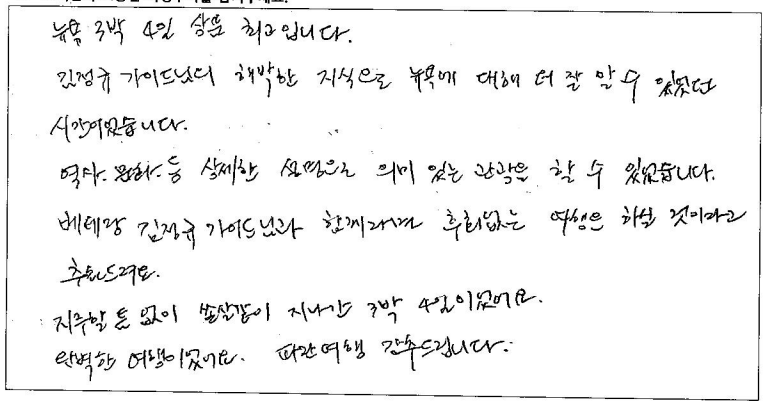 뉴욕 3박 4일 상품 최고입니다.
김정규 가이드님의 해박한 지식으로 뉴욕에 대해 더 잘 알 수 있었던
시간이었습니다.
역사. 문화. 등 상세한 설명으로 의미 있는 관광을 할 수 있었습니다.
베테랑 김정규 가이드님과 함께라면 후회없는 여행을 하실 것이라고
추천드려요.
지루할 틈 없이 쏜살같이 지나간 3박 4일이었어요.
완벽한 여행이었어요. 파란여행 강추드립니다.